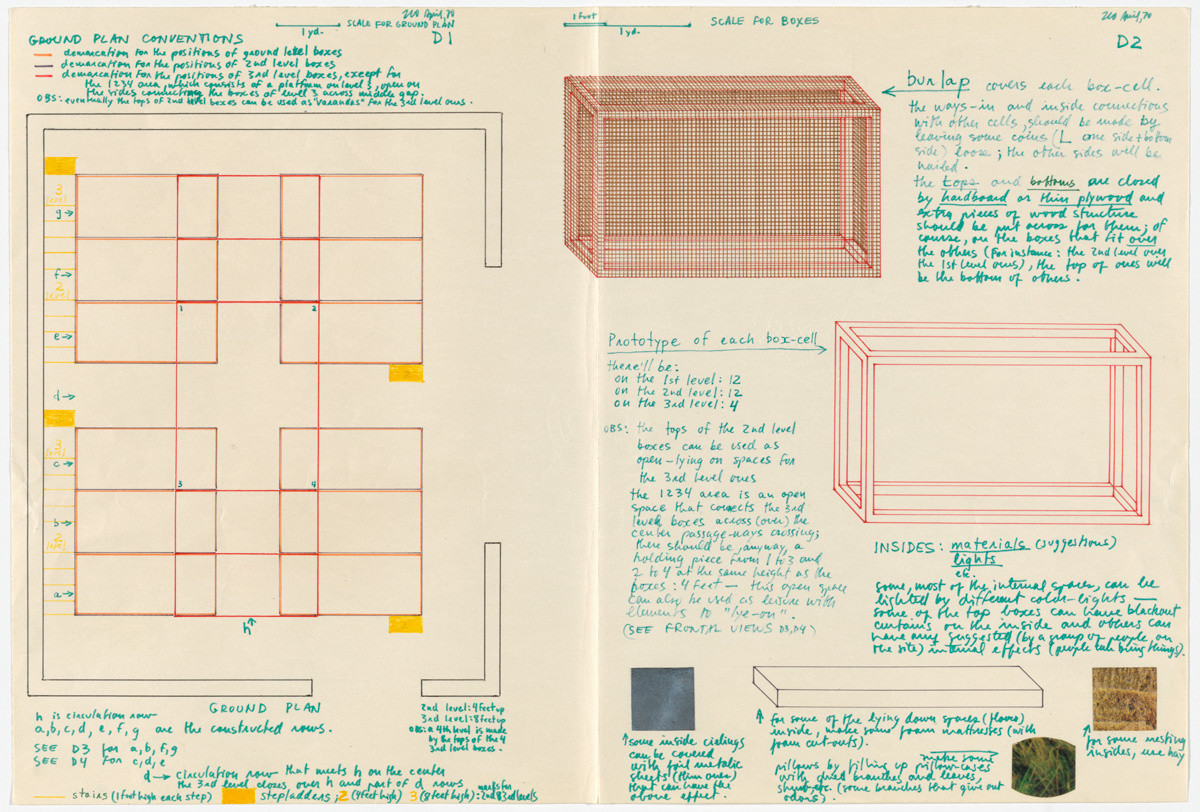 SCALE FOR GROUND PLAN
1 yd.
April, 70
D1
GROUND PLAN CONVENTIONS
demarcation for the positions of ground level boxes
demarcation for the positions of 2nd level boxes
demarcation for the positions of 3rd level boxes, except for
the 1234 area, which consists of a platform on level 3, open on
the sides connecting the boxes of level 3 across middle gap.
OBS: eventually the tops of 2nd level boxes can be used as "varandas" for the 3rd level ones.
3
level
g→
f→
2
level
1
2
e→
d→
3
level
c→
3
4
b→
2
level
a→
h
GROUND PLAN
h is circulation row
a, b, c, d, e, f, g are the constructed rows.
SEE D3 for a, b, f, g
SEE D4 for c, d, e
d → circulation row that meets h on the center
the 3rd level closes over h and part of d rows
2nd level: 4 feet up
3rd level: 8 feet up
OBS: a 4th level is made
by the tops of the 4
3rd level boxes.
stairs (1 foot high each step)
stepladders; 2 (4 feet high) 3 (8 feet high): 2nd & 3rd levels
1 foot
1 yd.
SCALE FOR BOXES
April, 70
D2
burlap covers each box-cell.
the ways-in and inside connections
with other cells, should be made by
leaving some (L one side + bottom
side) loose; the other sides will be
nailed.
the tops and bottoms are closed
by hardboard or thin plywood and
extra pieces of wood structure
should be put across for them; of
course, on the boxes that fit over
the others (for instance: the 2nd level over
the 1st level ones), the top of ones will
be the bottom of others.
Prototype of each box-cell
there'll be:
on the 1st level: 12
on the 2nd level: 12
on the 3rd level: 4
OBS: the tops of the 2nd level
boxes can be used as
open-lying on spaces for
the 3rd level ones
the 1234 area is an open
space that conects the 3rd
level boxes across (over) the
center passage-ways crossing;
there should be, anyway, a
holding piece from 1 to 3 and
2 to 4 at the same height as the
boxes: 4 feet — this open space
can also be used as leisure with
elements to "lye-on".
(SEE FRONTAL VIEWS D3, D4)
INSIDES: materials (suggestions)
lights
etc.
some, most of the internal spaces, can be
lighted by different color-lights —
some of the top boxes can have blackout
curtains on the inside and others can
have any suggested (by a group of people, on
the site) internal effects (people can bring things).
↑ some inside cielings
can be covered
with foil metalic
sheets (thin ones)
that can have the
above effect.
↑ for some of the lying down spaces (floors)
inside, make some foam mattrases (with
foam cut-outs).
make some
pillows by filling up pillow-cases
with dried branches and leaves,
shrub etc. (some branches that give out
odors).
↑ for some nesting
insides, use hay